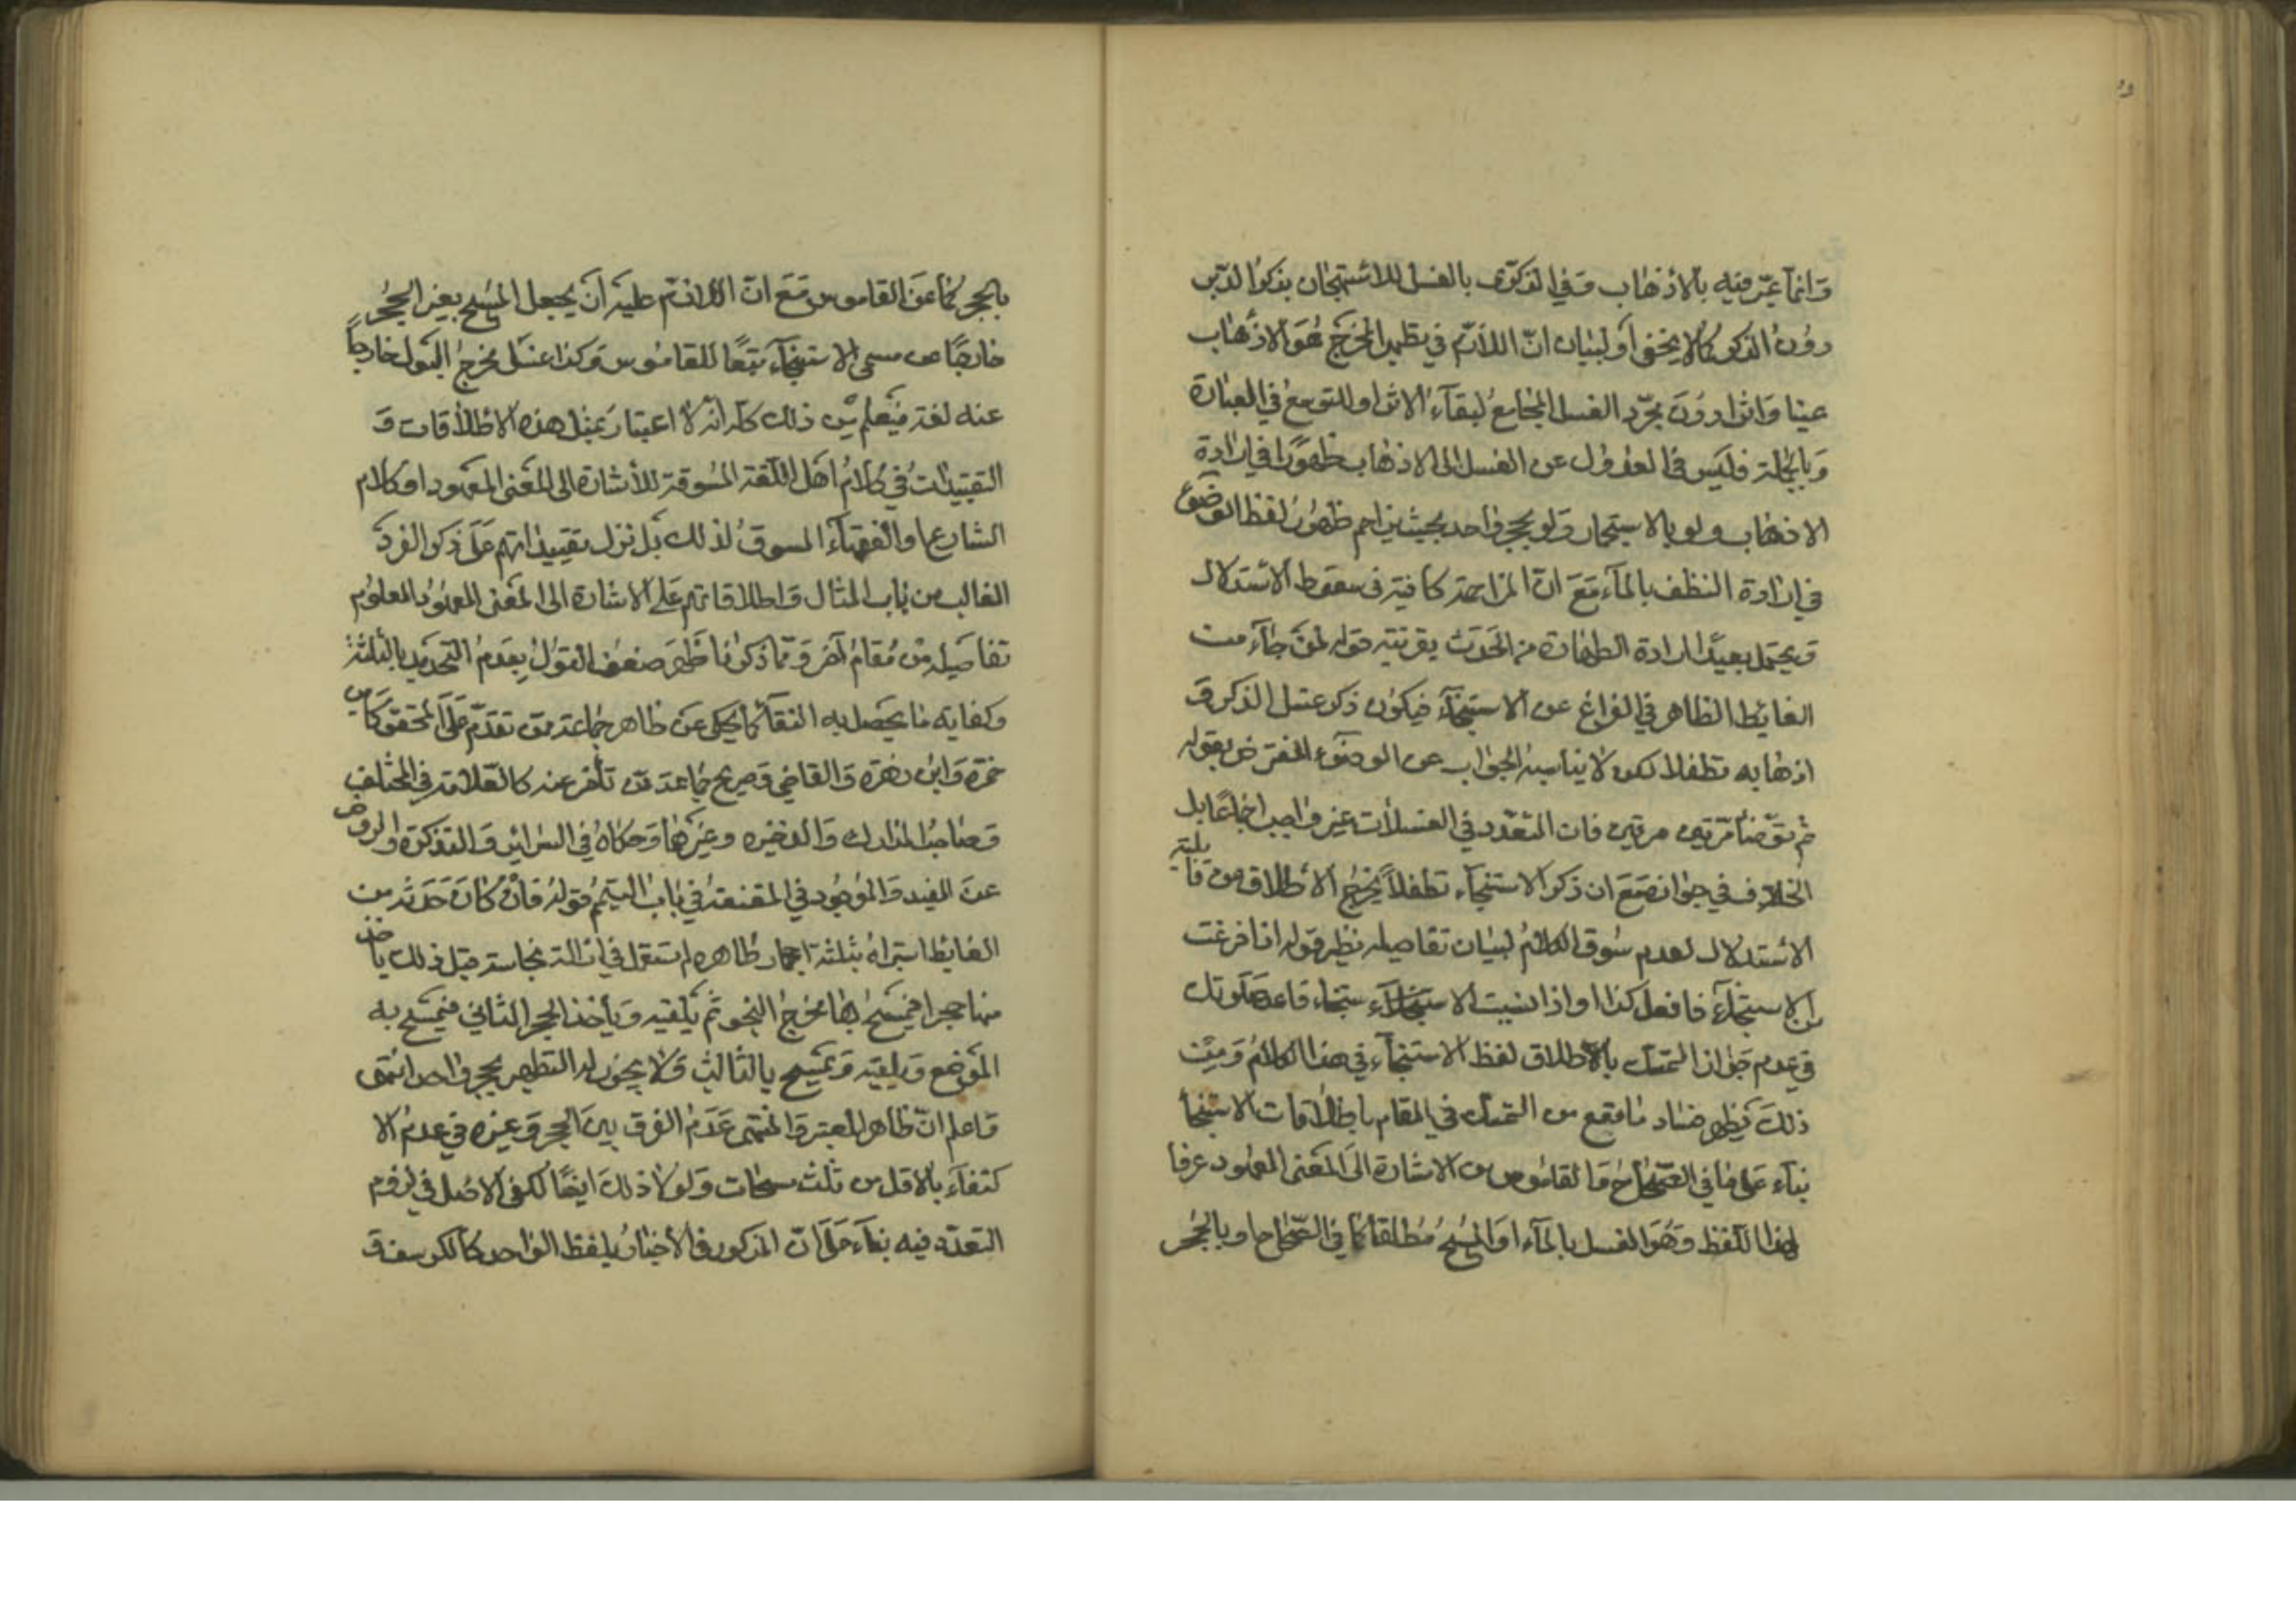 وانما عبّر فيه بالاذهاب وفي الذكرى بالغسل للاستهجان بذكر الدبر
دون الذكر كما لا يخفى او لبيان انّ اللازم في تطهير المخرج هو الاذهاب
عينا واثرا دون مجرّد الغسل المجامع لبقاء الاثر او للتوسع في العبارة
وبالجملة فليس في العدول عن الغسل الى الاذهاب ظهورا في ارادة
الاذهاب ولو بالاستجمار ولو بحجر واحد بحيث يزاحم ظهور لفظ الوضوء
في ارادة التنظف بالماء مع انّ المزاحمة كافية في سقوط الاستدلال
ويحتمل بعيدا ارادة الطهارة من الحدث بقرينة قوله لمن جاء من
الغايط الظاهر في الفراغ عن الاستنجاء فيكون ذكر غسل الذكر و
اذهابه تطفلا لكن لا يناسبه الجواب عن الوضوء المفترض بقوله
ثم توضأ مرتين مرتين فان التعدد في الغسلات غير واجب اجماعا بل
الخلاف في جوازه مع ان ذكر الاستنجاء تطفلا يخرج الاطلاق من قابلية
الاستدلال لعدم سوق الكلام لبيان تفاصيله نظير قوله اذا فرغت
من الاستنجاء فافعل كذا او اذا نسيت الاستنجاء فاعد صلوتك
في عدم جواز التمسك بالاطلاق لفظ الاستنجاء في هذا الكلام ومن
ذلك يظهر فساد ما وقع من التمسك في المقام باطلاقات الاستنجا
بناء على ما في الصحاح والقاموس من الاشارة الى المعنى المعهود عرفا
لهذا اللفظ وهو الغسل بالماء او المسح مطلقا كما في الصحاح او بالحجر
بالحجر كما عن القاموس مع ان اللازم عليه ان يجعل المسح بغير الحجر
خارجا عن مسمى الاستنجاء تبعا للقاموس وكذا غسل مخرج البول خارجا
عنه لغة فيعلم من ذلك كله انه لا اعتبار بمثل هذه الاطلاقات و
التقييدات في كلام اهل اللغة المسوقة للاشارة الى المعنى المعهود او كلام
الشارع او الفقهاء المسوق لذلك بل نزل تقييداتهم على ذكر الفرد
الغالب من باب المثال واطلاقاتهم على الاشارة الى المعنى المعهود المعلوم
تفاصيله من مقام آخر ومما ذكرنا ظهر ضعف القول بعدم التحديد بالثلثة
وكفاية ما يحصل به النقأ كما يحكى عن ظاهر جماعة ممن تقدم على المحقق كابن
حمزة وابن زهرة والقاضي وصريح جماعة ممن تأخر عنه كالعلامة في المختلف
وصاحب المدارك والذخيره وغيرهما وحكاه في السرائر والتذكرة والروض
عن المفيد والموجود في المقنعة في باب التيمم قوله فان كان حدثه من
الغايط استبراه بثلثة احجار طاهره لم تستعمل في ازالة نجاسة قبل ذلك ياخذ
منها حجرا فيمسح بها مخرج النجو ثم يلقيه ويأخذ الحجر الثاني فيمسح به
الموضع ويلقيه ويمسح بالثالث ولا يجوز له التطهير بحجر واحد انتهى
واعلم ان ظاهر المعتبر والمنتهى عدم الفرق بين الحجر وغيره في عدم الا
كتفاء بالاقل من ثلث مسحات ولولا ذلك ايضا لكفى الاصل في لزوم
التعدد فيه بناء على انّ المذكور في الاخبار بلفظ الواحد كالكرسف و